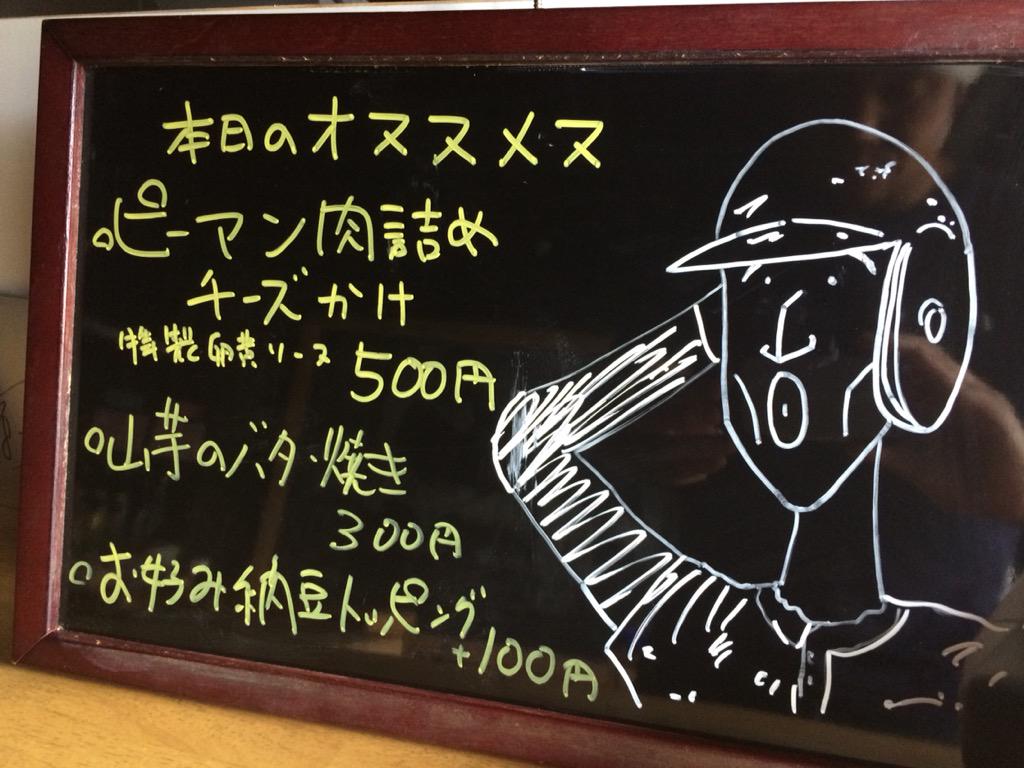 本日のオススメヌ
○ピーマン肉詰め
チーズかけ
特製卵黄ソース 500円
○山芋のバター焼き
300円
○お好み納豆トッピング
+100円